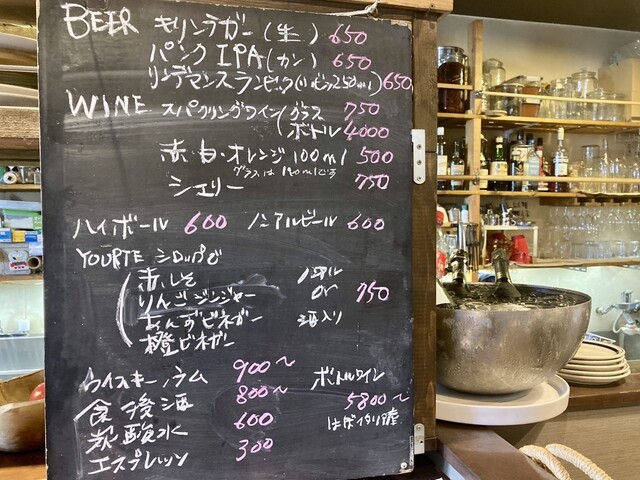 BEER キリンラガー(生) 650
パンクIPA(カン) 650
リンデマンスランビック(小ビン250ml) 650
WINE スパークリングワイン(グラス 750
ボトル 4000
赤・白・オレンジ 100ml 500
シェリー 750
ハイボール 600 ノンアルビール 600
YOURTE シロップで
赤しそ ノンアル
りんごジンジャー or 750
あんずビネガー 酒入り
橙ビネガー
ウイスキー・ラム 900〜
食後酒 800〜
炭酸水 600
エスプレッソ 300
ボトルワイン
5800〜
ほぼイタリア産